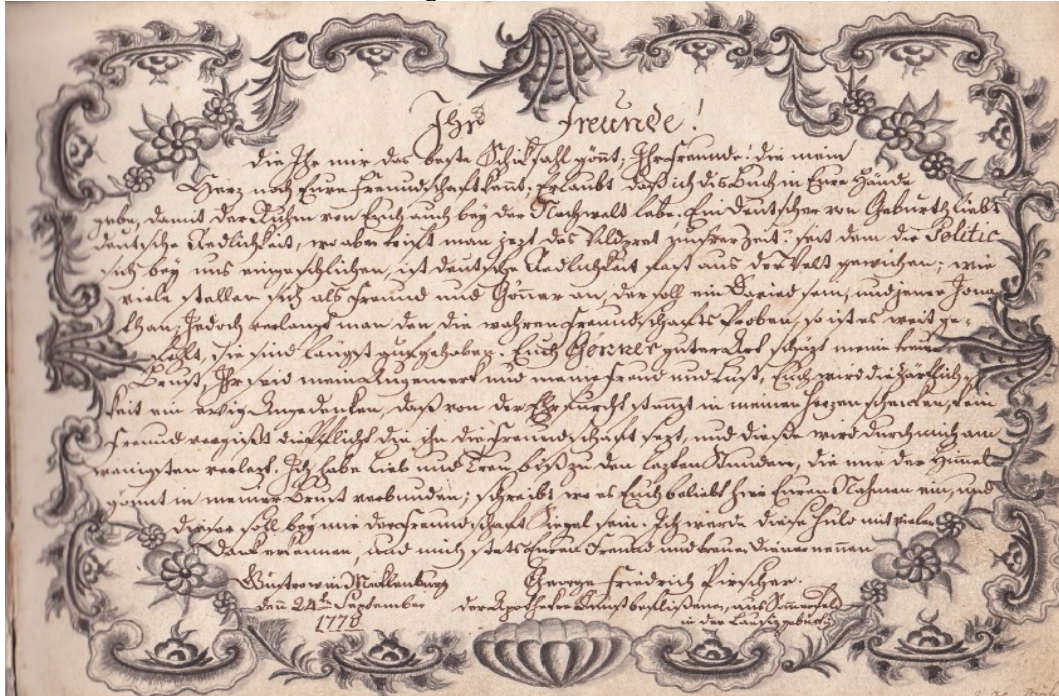 Ihr Freunde!
die Ihr mir das beste Schiksahl gönnt; Ihr Freunde! die mein
Herz noch Eure Freundschaft kennt; Erlaubt daß ich dis Buch in Eure Hände
gebe, damit der Ruhm von Euch auch bey der Nachwelt lebe. Ein Deutscher von Geburth liebt
deutsche Redlichkeit, wo aber trift man jezt das Wildpret unsrer Zeit? seit dem die Politic
sich bey uns eingeschlichen, ist deutsche Redlichkeit fast aus der Welt gewichen; wie
viele stellen sich als Freund und Gönner an, der soll ein David sein, und jener Jona-
than; Jedoch verlangt man den die wahren Freundschafts Proben, so ist es weit ge-
fehlt, sie sind längst aufgehoben. Euch Gönner guter Art schäzt meine treue
Brust, Ihr seid mein Augenmerk und meine Freud und Lust, Euch wird die Zärtlich-
keit ein ewig Angedenken, daß von der Ehrfurcht stammt in meinen Herzen schencken, kein
Freund vergißt die Pflicht die ihn die Freundschaft sezt, und diese wird durch mich am
wenigsten verlezt. Ich habe Lieb und Treu biß zu den lezten Stunden, die mir der Himmel
gönnt in meiner Brust verbunden; schreibt wo es Euch beliebt hier Euren Nahmen ein, und
dieser soll bey mir der Freundschaft Siegel sein. Ich werde diese Huld mit vielen
Dank erkennen, und mich stets Euren Freund und treuen Diener nennen
Güstrow in Meklenburg George Friedrich Pirscher.
den 24ten September der Apotheker Kunst beflißener, aus Sommerfeld
1778 in der Lausiz gebürtig